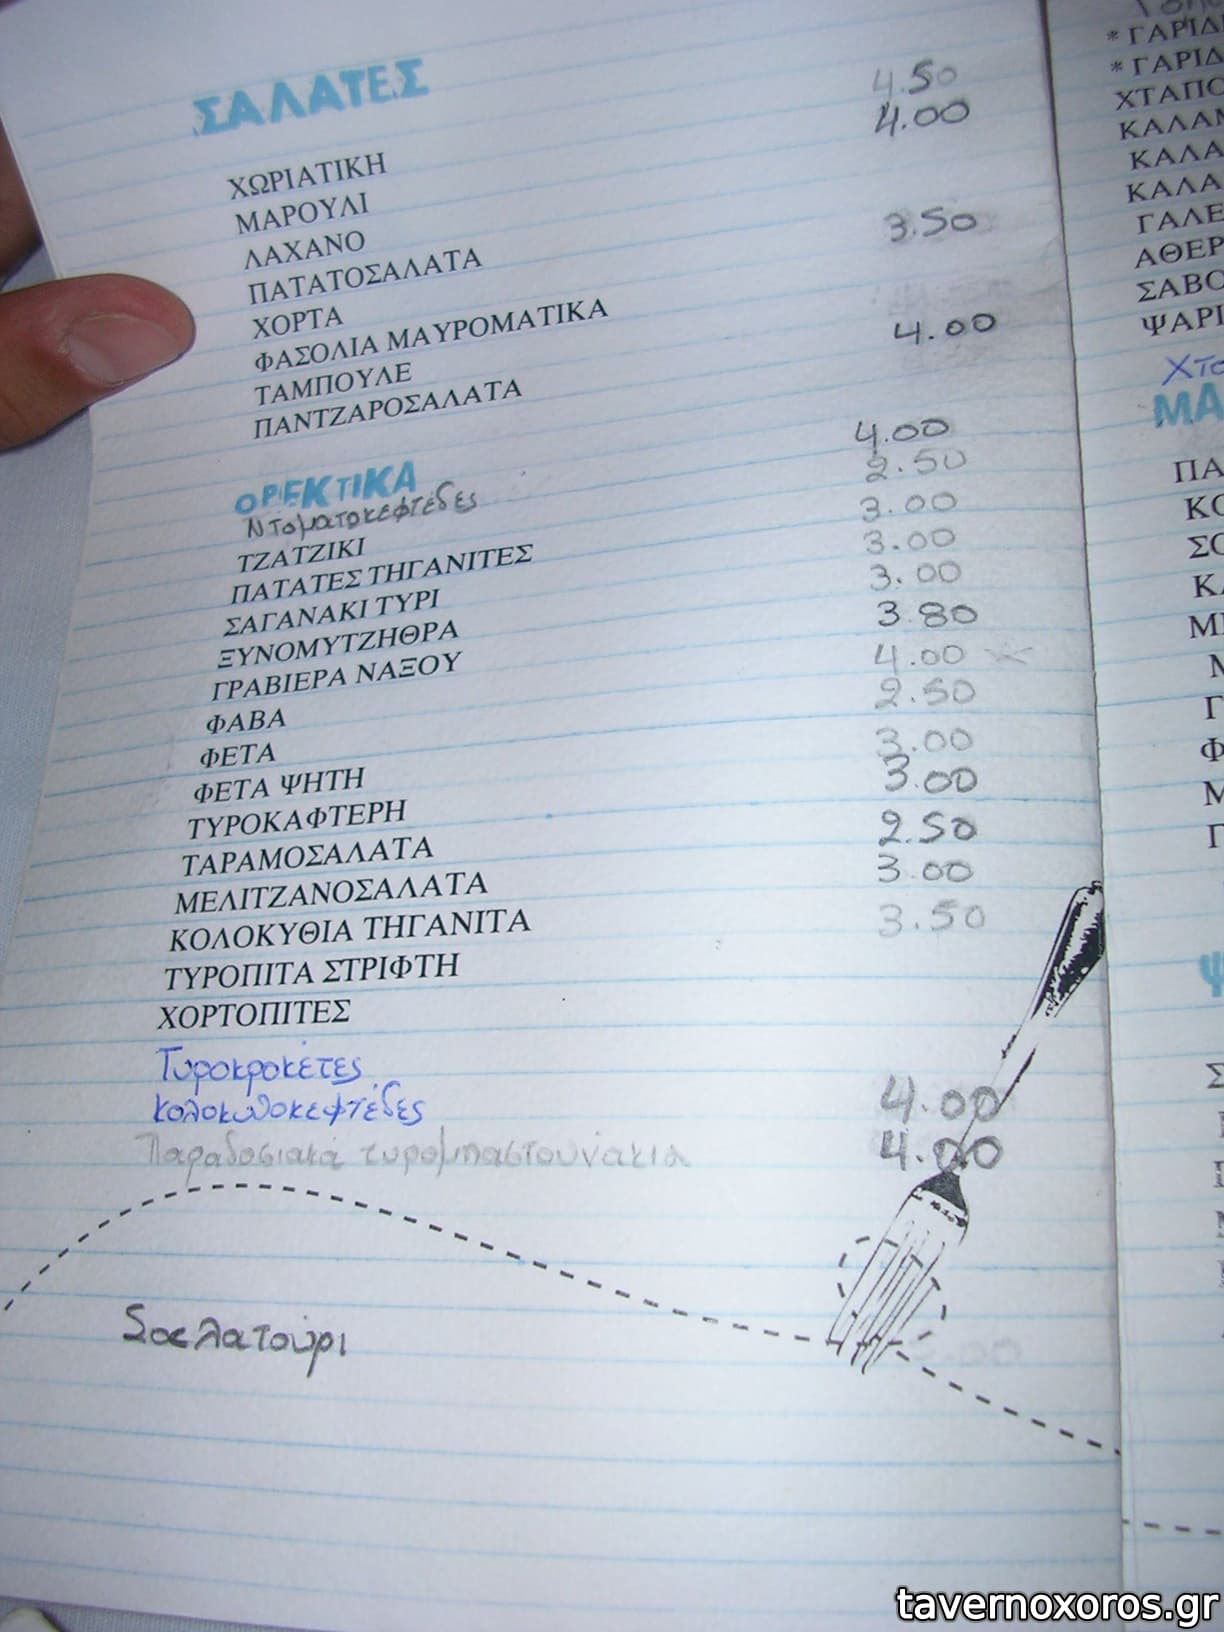 ΣΑΛΑΤΕΣ
ΧΩΡΙΑΤΙΚΗ 4.50
ΜΑΡΟΥΛΙ 4.00
ΛΑΧΑΝΟ
ΠΑΤΑΤΟΣΑΛΑΤΑ
ΧΟΡΤΑ 3.50
ΦΑΣΟΛΙΑ ΜΑΥΡΟΜΑΤΙΚΑ
ΤΑΜΠΟΥΛΕ
ΠΑΝΤΖΑΡΟΣΑΛΑΤΑ 4.00
ΟΡΕΚΤΙΚΑ
Ντοματοκεφτέδες 4.00
ΤΖΑΤΖΙΚΙ 2.50
ΠΑΤΑΤΕΣ ΤΗΓΑΝΙΤΕΣ 3.00
ΣΑΓΑΝΑΚΙ ΤΥΡΙ 3.00
ΞΥΝΟΜΥΤΖΗΘΡΑ 3.00
ΓΡΑΒΙΕΡΑ ΝΑΞΟΥ 3.80
ΦΑΒΑ 4.00
ΦΕΤΑ 2.50
ΦΕΤΑ ΨΗΤΗ 3.00
ΤΥΡΟΚΑΦΤΕΡΗ 3.00
ΤΑΡΑΜΟΣΑΛΑΤΑ 2.50
ΜΕΛΙΤΖΑΝΟΣΑΛΑΤΑ 3.00
ΚΟΛΟΚΥΘΙΑ ΤΗΓΑΝΙΤΑ 3.50
ΤΥΡΟΠΙΤΑ ΣΤΡΙΦΤΗ
ΧΟΡΤΟΠΙΤΕΣ
Τυροκροκέτες
κολοκυθοκεφτέδες 4.00
Παραδοσιακά τυρομπαστουνάκια 4.00
Σαελατούρι
* ΓΑΡΙΔ
* ΓΑΡΙΔ
ΧΤΑΠΟ
ΚΑΛΑΜ
ΚΑΛΑ
ΚΑΛΑ
ΓΑΛΕ
ΑΘΕΡ
ΣΑΒΟ
ΨΑΡΙ
Χτα
ΜΑ
ΠΑ
ΚΟ
tavernoxoros.gr